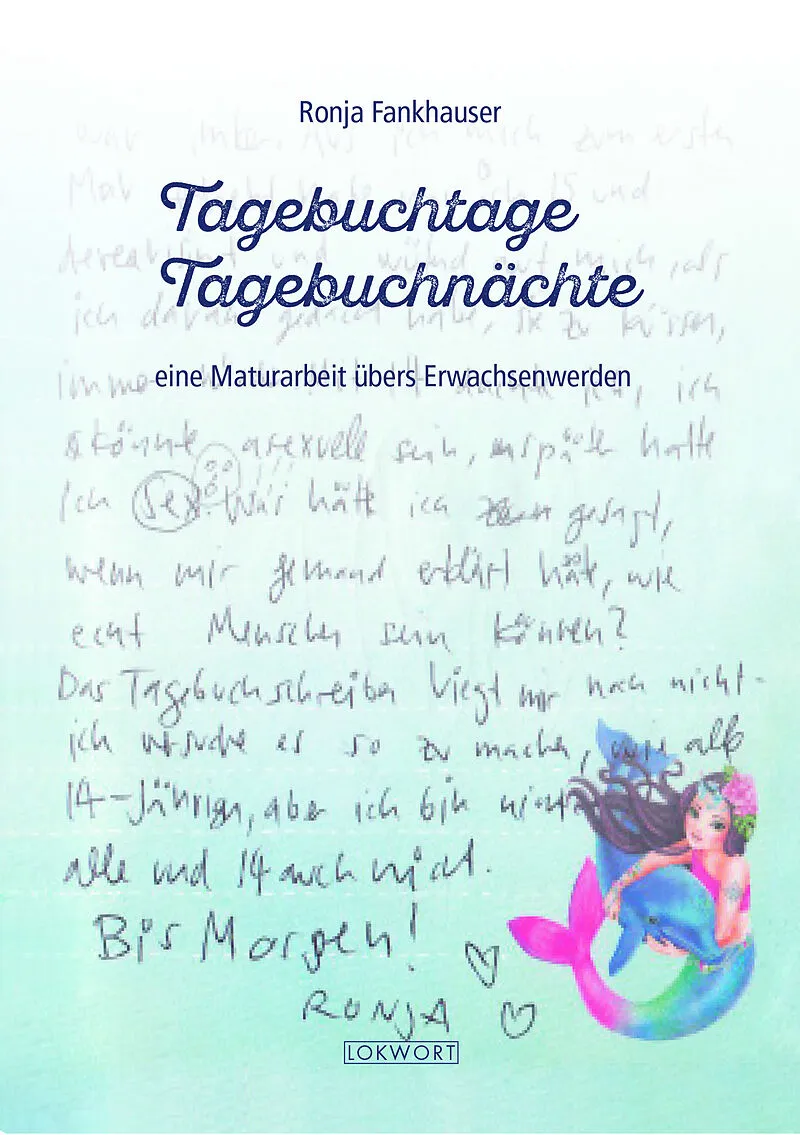 Ronja Fankhauser
ich mich zum ersten
Tagebuchtage
Mal 15 und
Tagebuchnächte
und mich, als
ich daran gedacht habe, sie zu küssen,
eine Maturarbeit übers Erwachsenwerden
ich
könnte asexuell sein, später hatte
ich Sex. Was hätt ich gesagt,
wenn mir jemand erklärt hätte, wie
echt Menschen sein können?
Das Tagebuchschreiben liegt mir noch nicht -
ich versuche es so zu machen, wie alle
14-Jährigen, aber ich bin nicht
alle und 14 auch nicht.
Bis Morgen!
RONJA
LOKWORT